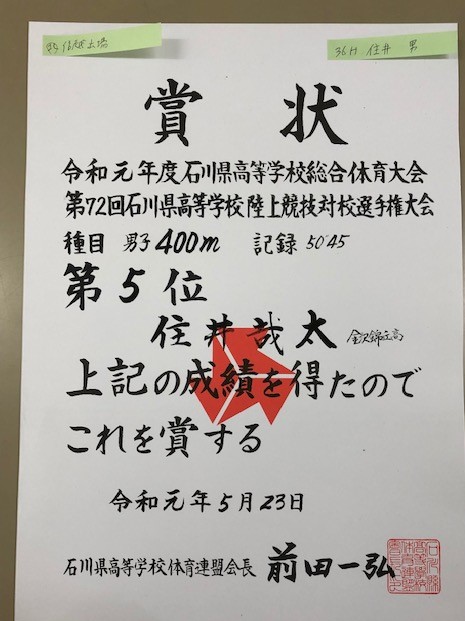 36H 住井 男
賞状
令和元年度石川県高等学校総合体育大会
第72回石川県高等学校陸上競技対校選手権大会
種目 男子400m 記録 50"45
第5位
住井哉太 金沢錦丘高
上記の成績を得たので
これを賞する
令和元年5月23日
石川県高等学校体育連盟会長 前田一弘